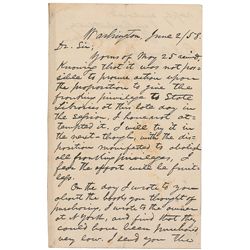 Washington, June 2/58.
Dr. Sir,
Yours of May 25 recd.
Knowing that it was not pos-
sible to procure action upon
the proposition to give the
franking privilege to State
Libraries at this late day in
the session, I have not at-
tempted it. I will try it in
the next - though, with the dis-
position manifested to abolish
all franking privileges, I
fear the effort will be fruit-
less.
On the day I wrote to you
about the books you thought of
purchasing, I wrote to the
at N. York, and find that they
could have been purchased
very low. I send you the